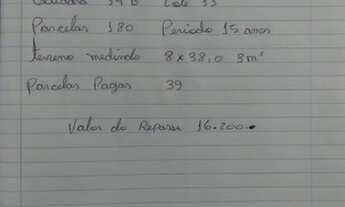 Quadra 39 B Lote 33
Parcelas 180 Periodo 15 anos
terreno medindo 8 x 38,0 3m²
Parcelas Pagas 39
Valor do Repasse 16.200